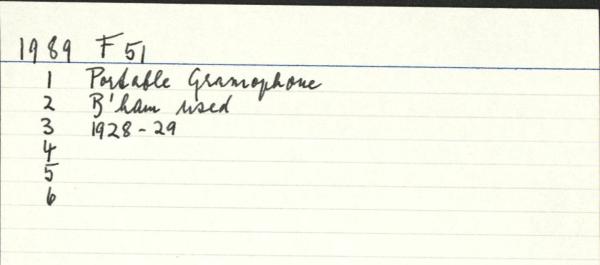 1989 F 51
1 Portable Gramophone
2 B'ham used
3 1928-29
4
5
6